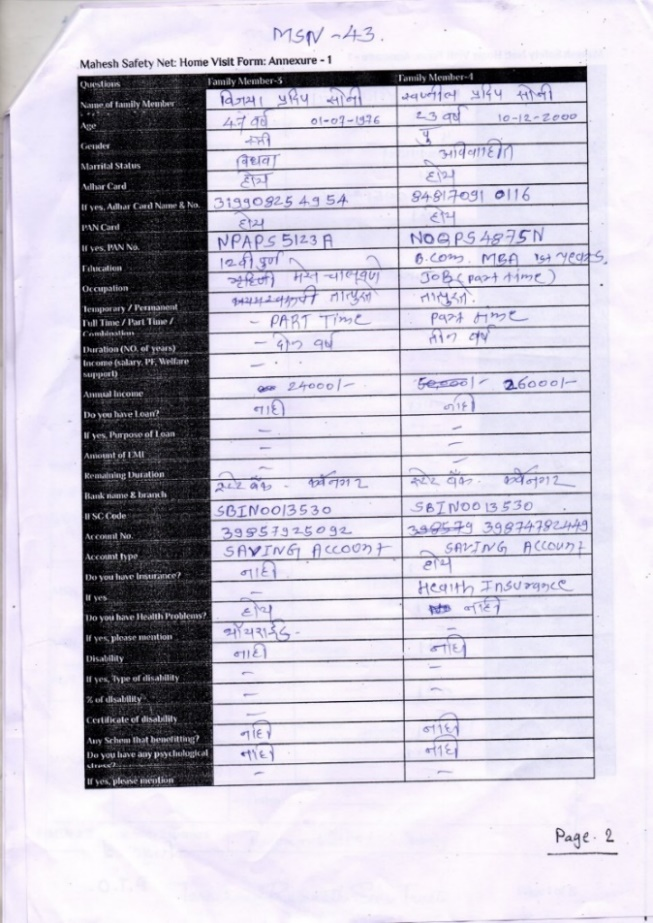 MSN-43.
Mahesh Safety Net: Home Visit Form: Annexure - 1
Questions Family Member-3 Family Member-4
Name of family Member विजया प्रदिप सोनी स्वप्नील प्रदिप सोनी
Age 47 वर्ष 01-07-1976 23 वर्ष 10-12-2000
Gender स्त्री पु
Marrital Status विधवा अविवाहीत
Adhar Card होय होय
If yes, Adhar Card Name & No. 319908254954 848170910116
PAN Card होय होय
If yes, PAN No. NPAPS5123A NOQPS4875N
Education 12वी पुर्ण B.com. MBA 1st years,
Occupation गृहिणी मेस JOB (part time)
Temporary / Permanent तात्पुरते तात्पुरते.
Full Time / Part Time / Combination - PART Time part time
Duration (NO. of years) - दोन वर्ष तीन वर्ष
Income (salary, PF, Welfare support) -
Annual Income 24000/- 50,000/- 260000/-
Do you have Loan? नाही नाही
If yes, Purpose of Loan - -
Amount of EMI - -
Remaining Duration - -
Bank name & branch स्टेट बँक - स्टेट बँक -
IFSC Code SBIN0013530 SBIN0013530
Account No. 39857925092 398579 39874782449
Account type SAVING ACCOUNT SAVING ACCOUNT
Do you have Insurance? नाही होय
If yes - Health Insurance
Do you have Health Problems? होय नाही
If yes, please mention थॉयराईड. -
Disability नाही नाही
If yes, Type of disability - -
% of disability - -
Certificate of disability - -
Any Schem that benefitting? नाही नाही
Do you have any psychological stress? नाही नाही
If yes, please mention - -
Page. 2